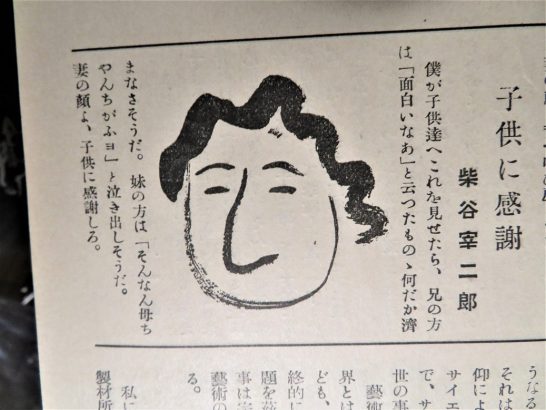 子供に感謝
柴谷宰二郎
僕が子供達へこれを見せたら、兄の方
は「面白いなあ」と云つたものゝ何だか濟
まなさそうだ。妹の方は「そんなん母ち
やんちがふヨ」と泣き出しそうだ。
妻の顔よ、子供に感謝しろ。
うなる
それは
仰によ
サイエ
で、サ
世の事
藝術
界とは
ども、
終的に
題を
事は
藝術の
る。
私に
製材所